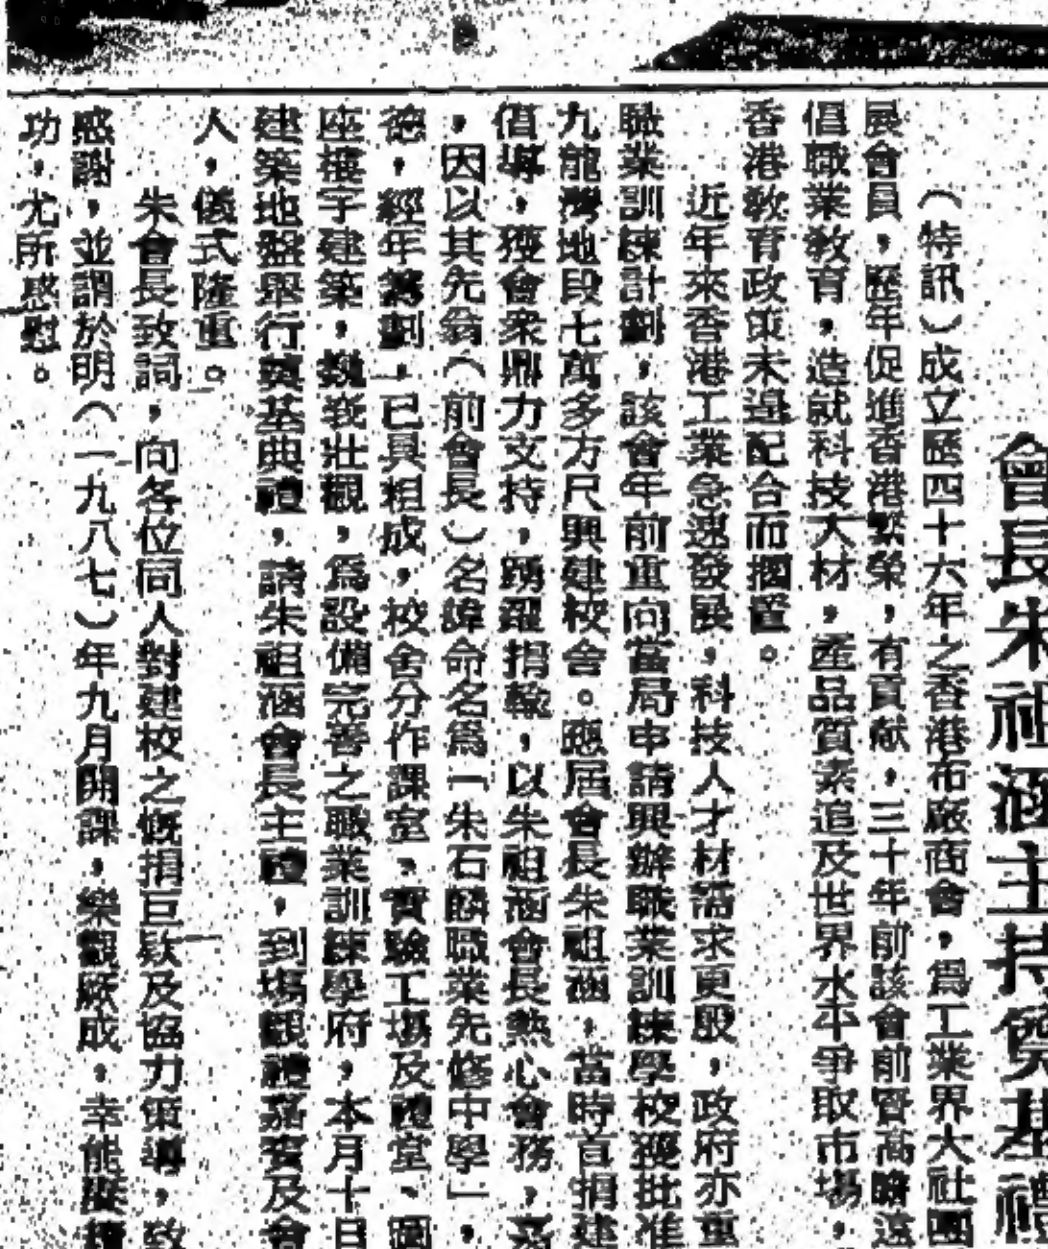 會長朱祖涵主持奠基禮
（特訊）成立歷四十六年之香港布廠商會，爲工業界大社團
展會員，歷年促進香港繁榮，有貢献，三十年前該會前賢高瞻遠
倡職業教育，造就科技人材，產品質素追及世界水平爭取市場，
香港教育政策未邉配合而擱置。
近年來香港工業急速發展，科技人才材需求更殷，政府亦重
職業訓練計劃，該會年前重向當局申請興辦職業訓練學校獲批准
九龍灣地段七萬多方尺興建校舍。應屆會長朱祖涵，當時首捐建
倡導，獲會衆鼎力支持，踴躍捐輸，以朱祖涵會長熱心會務，
，因以其先翁（前會長）名諱命名爲「朱石麟職業先修中學」，
德，經年籌劃，已具粗成，校舍分作課室、實驗工場及禮堂、圖
座樓宇建築，巍峩壯觀，爲設備完善之職業訓練學府，本月十日
建築地盤舉行奠基典禮，請朱祖涵會長主禮，到塲觀禮嘉賓及會
人，儀式隆重。
朱會長致詞，向各位同人對建校之慨捐巨欵及協力策導，致
感謝，並謂於明（一九八七）年九月開課，樂觀厥成，幸能
功，尤所感慰。